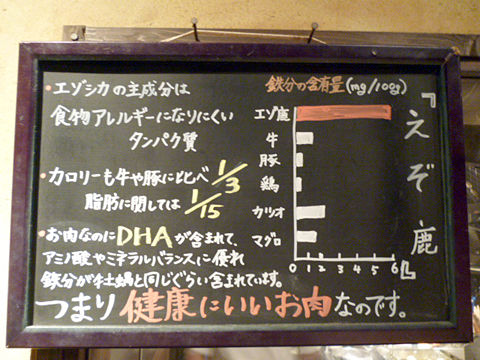 ・エゾシカの主成分は
食物アレルギーになりにくい
タンパク質
・カロリーも牛や豚に比べ1/3
脂肪に関しては1/15
・お肉なのにDHAが含まれて、
アミノ酸やミネラルバランスに優れ
鉄分が牡蠣と同じぐらい含まれています。
つまり健康にいいお肉なのです。
鉄分の含有量(mg/100g)
エゾ鹿
牛
豚
鶏
カツオ
マグロ
0 1 2 3 4 5 6
『えぞ鹿』